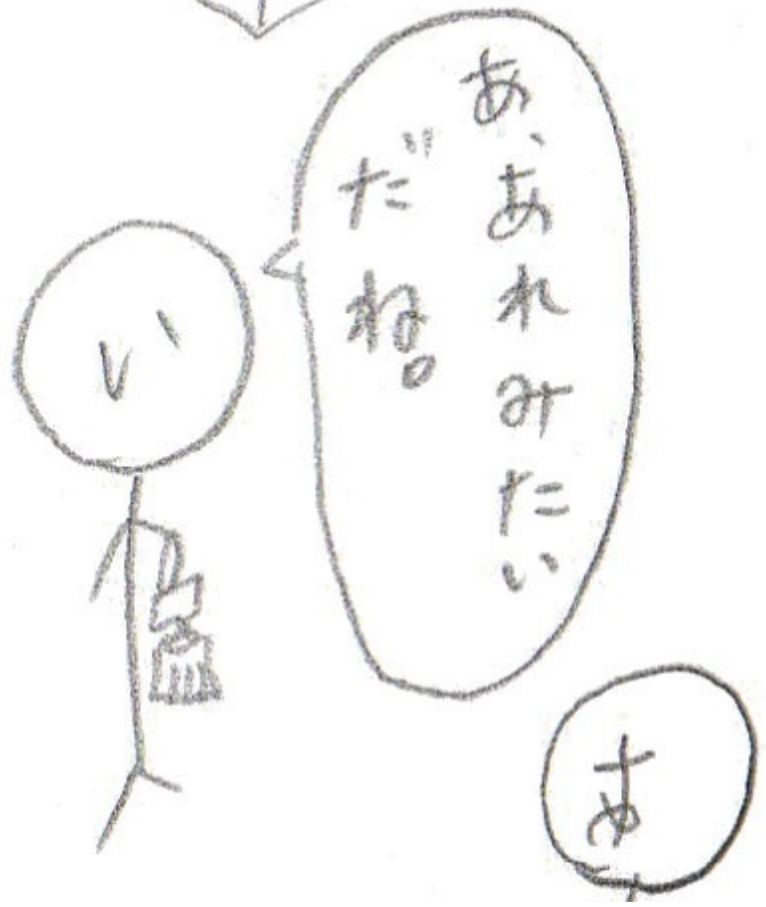 あ、あれみたい
だね。
い
あ